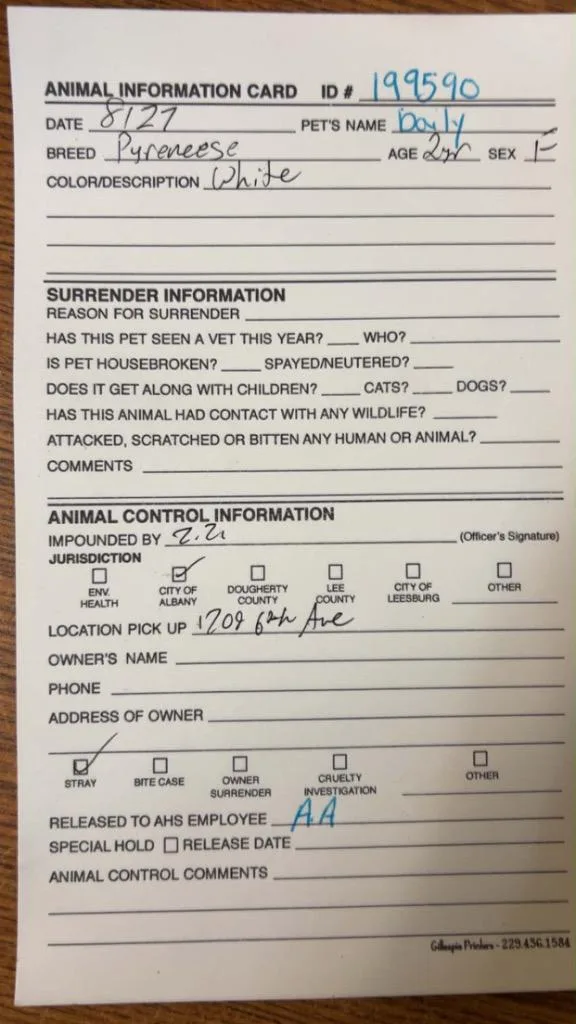 ANIMAL INFORMATION CARD ID # 199590
DATE 8127 PET'S NAME Daily
BREED Pyreneese AGE 2yr SEX F
COLOR/DESCRIPTION White
SURRENDER INFORMATION
REASON FOR SURRENDER
HAS THIS PET SEEN A VET THIS YEAR? WHO?
IS PET HOUSEBROKEN? SPAYED/NEUTERED?
DOES IT GET ALONG WITH CHILDREN? CATS? DOGS?
HAS THIS ANIMAL HAD CONTACT WITH ANY WILDLIFE?
ATTACKED, SCRATCHED OR BITTEN ANY HUMAN OR ANIMAL?
COMMENTS
ANIMAL CONTROL INFORMATION
IMPOUNDED BY (Officer's Signature)
JURISDICTION
ENV. HEALTH CITY OF ALBANY DOUGHERTY COUNTY LEE COUNTY CITY OF LEESBURG OTHER
LOCATION PICK UP 1709 6th Ave
OWNER'S NAME
PHONE
ADDRESS OF OWNER
STRAY BITE CASE OWNER SURRENDER CRUELTY INVESTIGATION OTHER
RELEASED TO AHS EMPLOYEE A.A
SPECIAL HOLD RELEASE DATE
ANIMAL CONTROL COMMENTS
Gillespie Printers - 229.436.1584